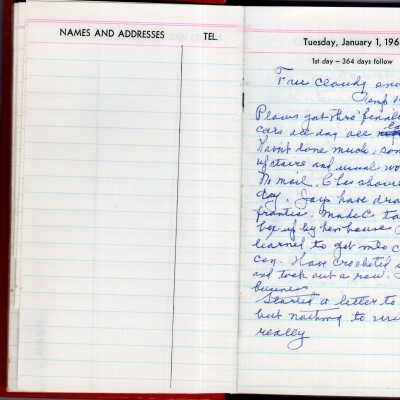 NAMES AND ADDRESSES TEL.
Tuesday, January 1, 196
1st day — 364 days follow
cloudy
Temp
Plows got thro' finall
cars all day
Havn't done much, som
upstairs and usual wo
No mail. Chas shove
day. Jays have dra
frantic. Made C. ta
box up by hen house
learned to get into c
can. Have crocheted
and took out a row.
business
Started a letter to
but nothing to
really